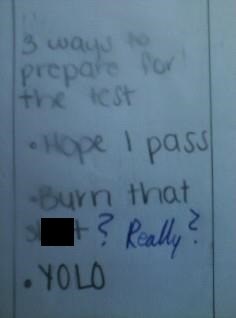 3 ways to
prepare for
the test
• Hope I pass
• Burn that
s t? Really?
• YOLO